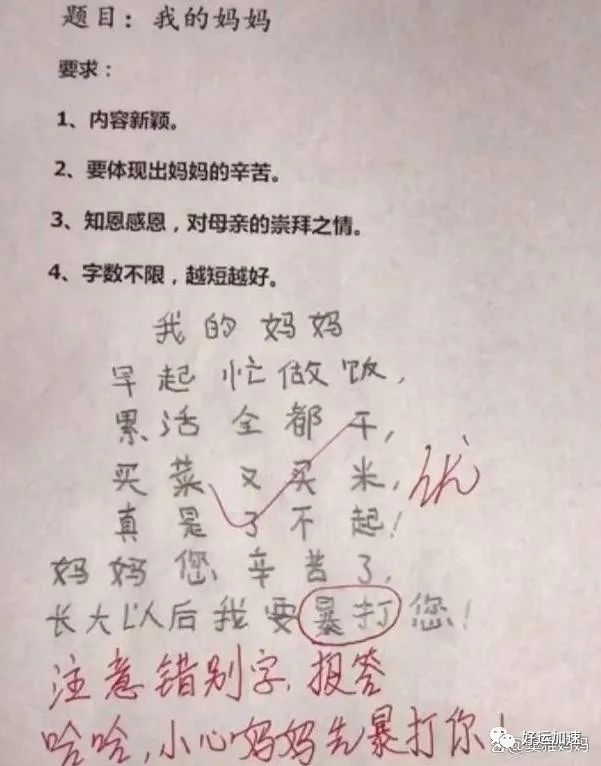 题目：我的妈妈
要求：
1、内容新颖。
2、要体现出妈妈的辛苦。
3、知恩感恩，对母亲的崇拜之情。
4、字数不限，越短越好。
我的妈妈
早起忙做饭，
累活全都干，
买菜又买米，
优
真是了不起！
妈妈您辛苦了，
长大以后我要暴打您！
注意错别字，报答
哈哈，小心妈妈先暴打你！
好运加速